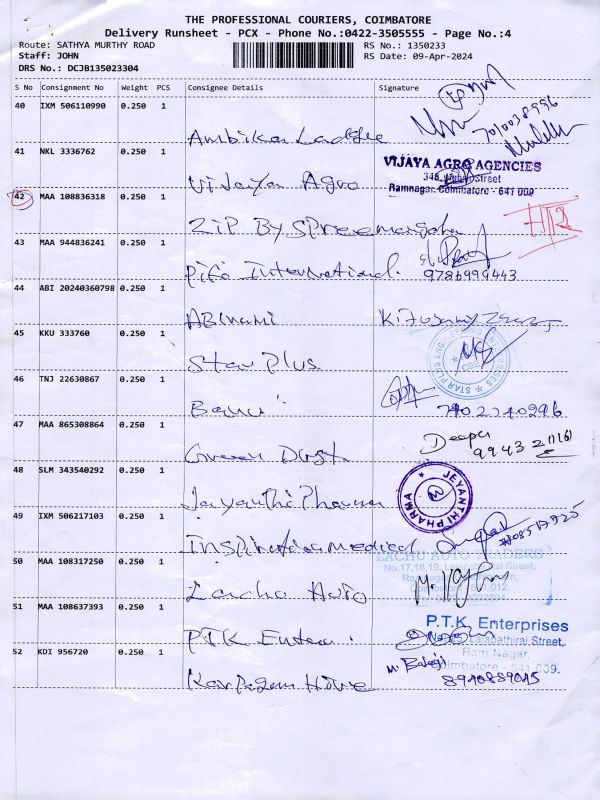 THE PROFESSIONAL COURIERS, COIMBATORE
Delivery Runsheet - PCX - Phone No.:0422-3505555 - Page No.:4
Route: SATHYA MURTHY ROAD RS No.: 1350233
Staff: JOHN RS Date: 09-Apr-2024
DRS No.: DCJB135023304
S No Consignment No Weight PCS Consignee Details Signature
40 IXM 506110990 0.250 1
7010038996
Ambika
41 NKL 3336762 0.250 1
VIJAYA AGRO AGENCIES
Street
Ramnagar, Coimbatore - 641 009
Vijaya Agro
42 MAA 108836318 0.250 1
Zip By Spree
43 MAA 944836241 0.250 1
Pifo International.
44 ABI 20240360798 0.250 1
ABInami
45 KKU 333760 0.250 1
STAR PLUS ENG
CBE
Star Plus.
46 TNJ 22630867 0.250 1
47 MAA 865308864 0.250 1
Deepa
Green Dist.
48 SLM 343540292 0.250 1
JEYANTHI PHARMA
Jayanthi Pharma
49 IXM 506217103 0.250 1
Medical
50 MAA 108317250 0.250 1
LACHU AUTO TRADERS
No.17,18,19,
Lachu Auto
51 MAA 108637393 0.250 1
P.T.K. Enterprises
Lajapathirai Street,
Ram Nagar,
PTK
52 KDI 956720 0.250 1
M. Balaji
Coimbatore - 641 009.
Karpagam Home